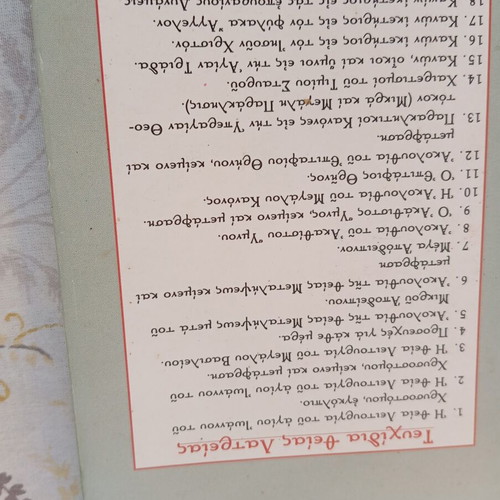 Τευχίδια Θείας Λατρείας
1. Ἡ Θεία Λειτουργία τοῦ ἁγίου Ἰωάννου τοῦ
Χρυσοστόμου, ἐγκόλπιο.
2. Ἡ Θεία Λειτουργία τοῦ ἁγίου Ἰωάννου τοῦ
Χρυσοστόμου, κείμενο καὶ μετάφραση.
3. Ἡ Θεία Λειτουργία τοῦ Μεγάλου Βασιλείου.
4. Προσευχές γιὰ κάθε μέρα.
5. Ἀκολουθία τῆς Θείας Μεταλήψεως μετά τοῦ
Μικροῦ Ἀποδείπνου.
6. Ἀκολουθία τῆς Θείας Μεταλήψεως, κείμενο καί
μετάφραση.
7. Μέγα Ἀπόδειπνον.
8. Ἀκολουθία τοῦ Ἀκαθίστου Ὕμνου.
9. Ὁ Ἀκάθιστος Ὕμνος, κείμενο καί μετάφραση.
10. Ἡ Ἀκολουθία τοῦ Μεγάλου Κανόνος.
11. Ὁ Ἐπιτάφιος Θρῆνος.
12. Ἀκολουθία τοῦ Ἐπιταφίου Θρήνου, κείμενο καί
μετάφραση.
13. Παρακλητικοί Κανόνες εἰς τήν Ὑπεραγίαν Θεο-
τόκον (Μικρά καί Μεγάλη Παράκλησις).
14. Χαιρετισμοί τοῦ Τιμίου Σταυροῦ.
15. Κανών, οἶκοι καί ὕμνοι εἰς τήν Ἁγίαν Τριάδα.
16. Κανών ἱκετήριος εἰς τόν Ἰησοῦν Χριστόν.
17. Κανών ἱκετήριος εἰς τόν φύλακα Ἄγγελον.
18. Κανών ἱκετήριος εἰς τάς ἐπουρανίους Δυνάμεις